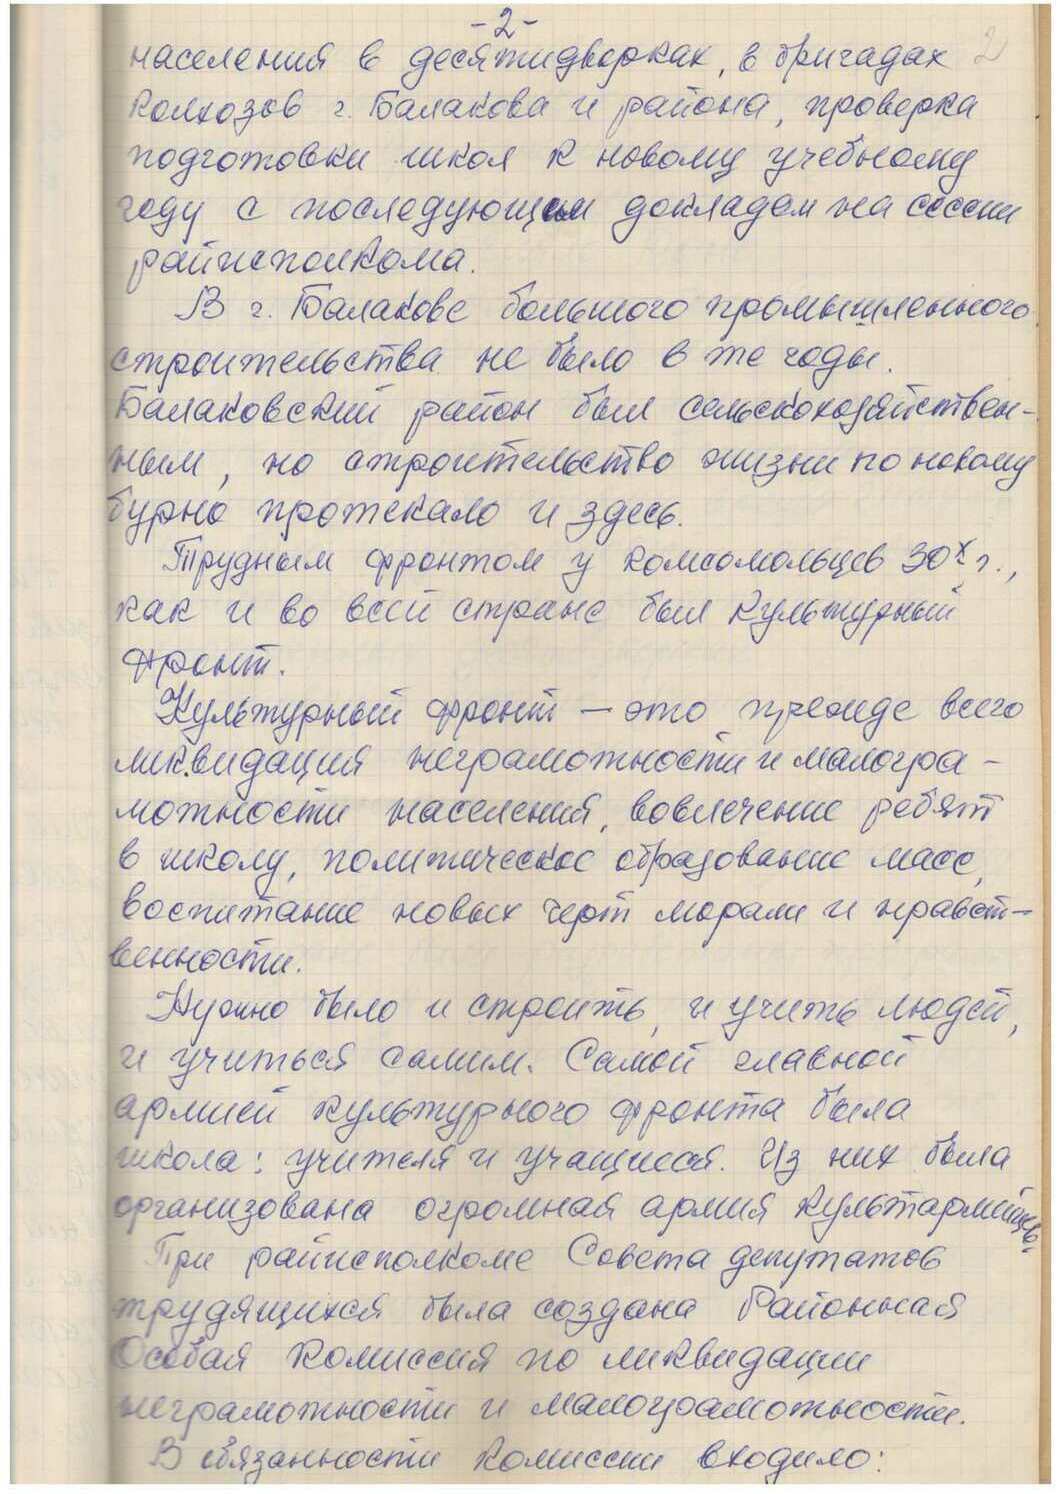 -2-
2
населения в десятидворках, в бригадах
колхозов г. Балакова и района, проверка
подготовки школ к новому учебному
году с последующим докладом на сессии
райисполкома.
В г. Балакове большого промышленного
строительства не было в те годы.
Балаковский район был сельскохозяйствен-
ным, но строительство жизни по новому
бурно протекало и здесь.
Трудным фронтом у комсомольцев 30х г.,
как и во всей стране был культурный
фронт.
Культурный фронт — это прежде всего
ликвидация неграмотности и малогра-
мотности населения, вовлечение ребят
в школу, политическое образование масс,
воспитание новых черт морали и нравст-
венности.
Нужно было и строить, и учить людей,
и учиться самим. Самой главной
армией культурного фронта была
школа: учителя и учащиеся. Из них была
организована огромная армия культармейцев.
При райисполкоме Совета депутатов
трудящихся была создана Районная
Особая комиссия по ликвидации
неграмотности и малограмотности.
В обязанности комиссии входило: